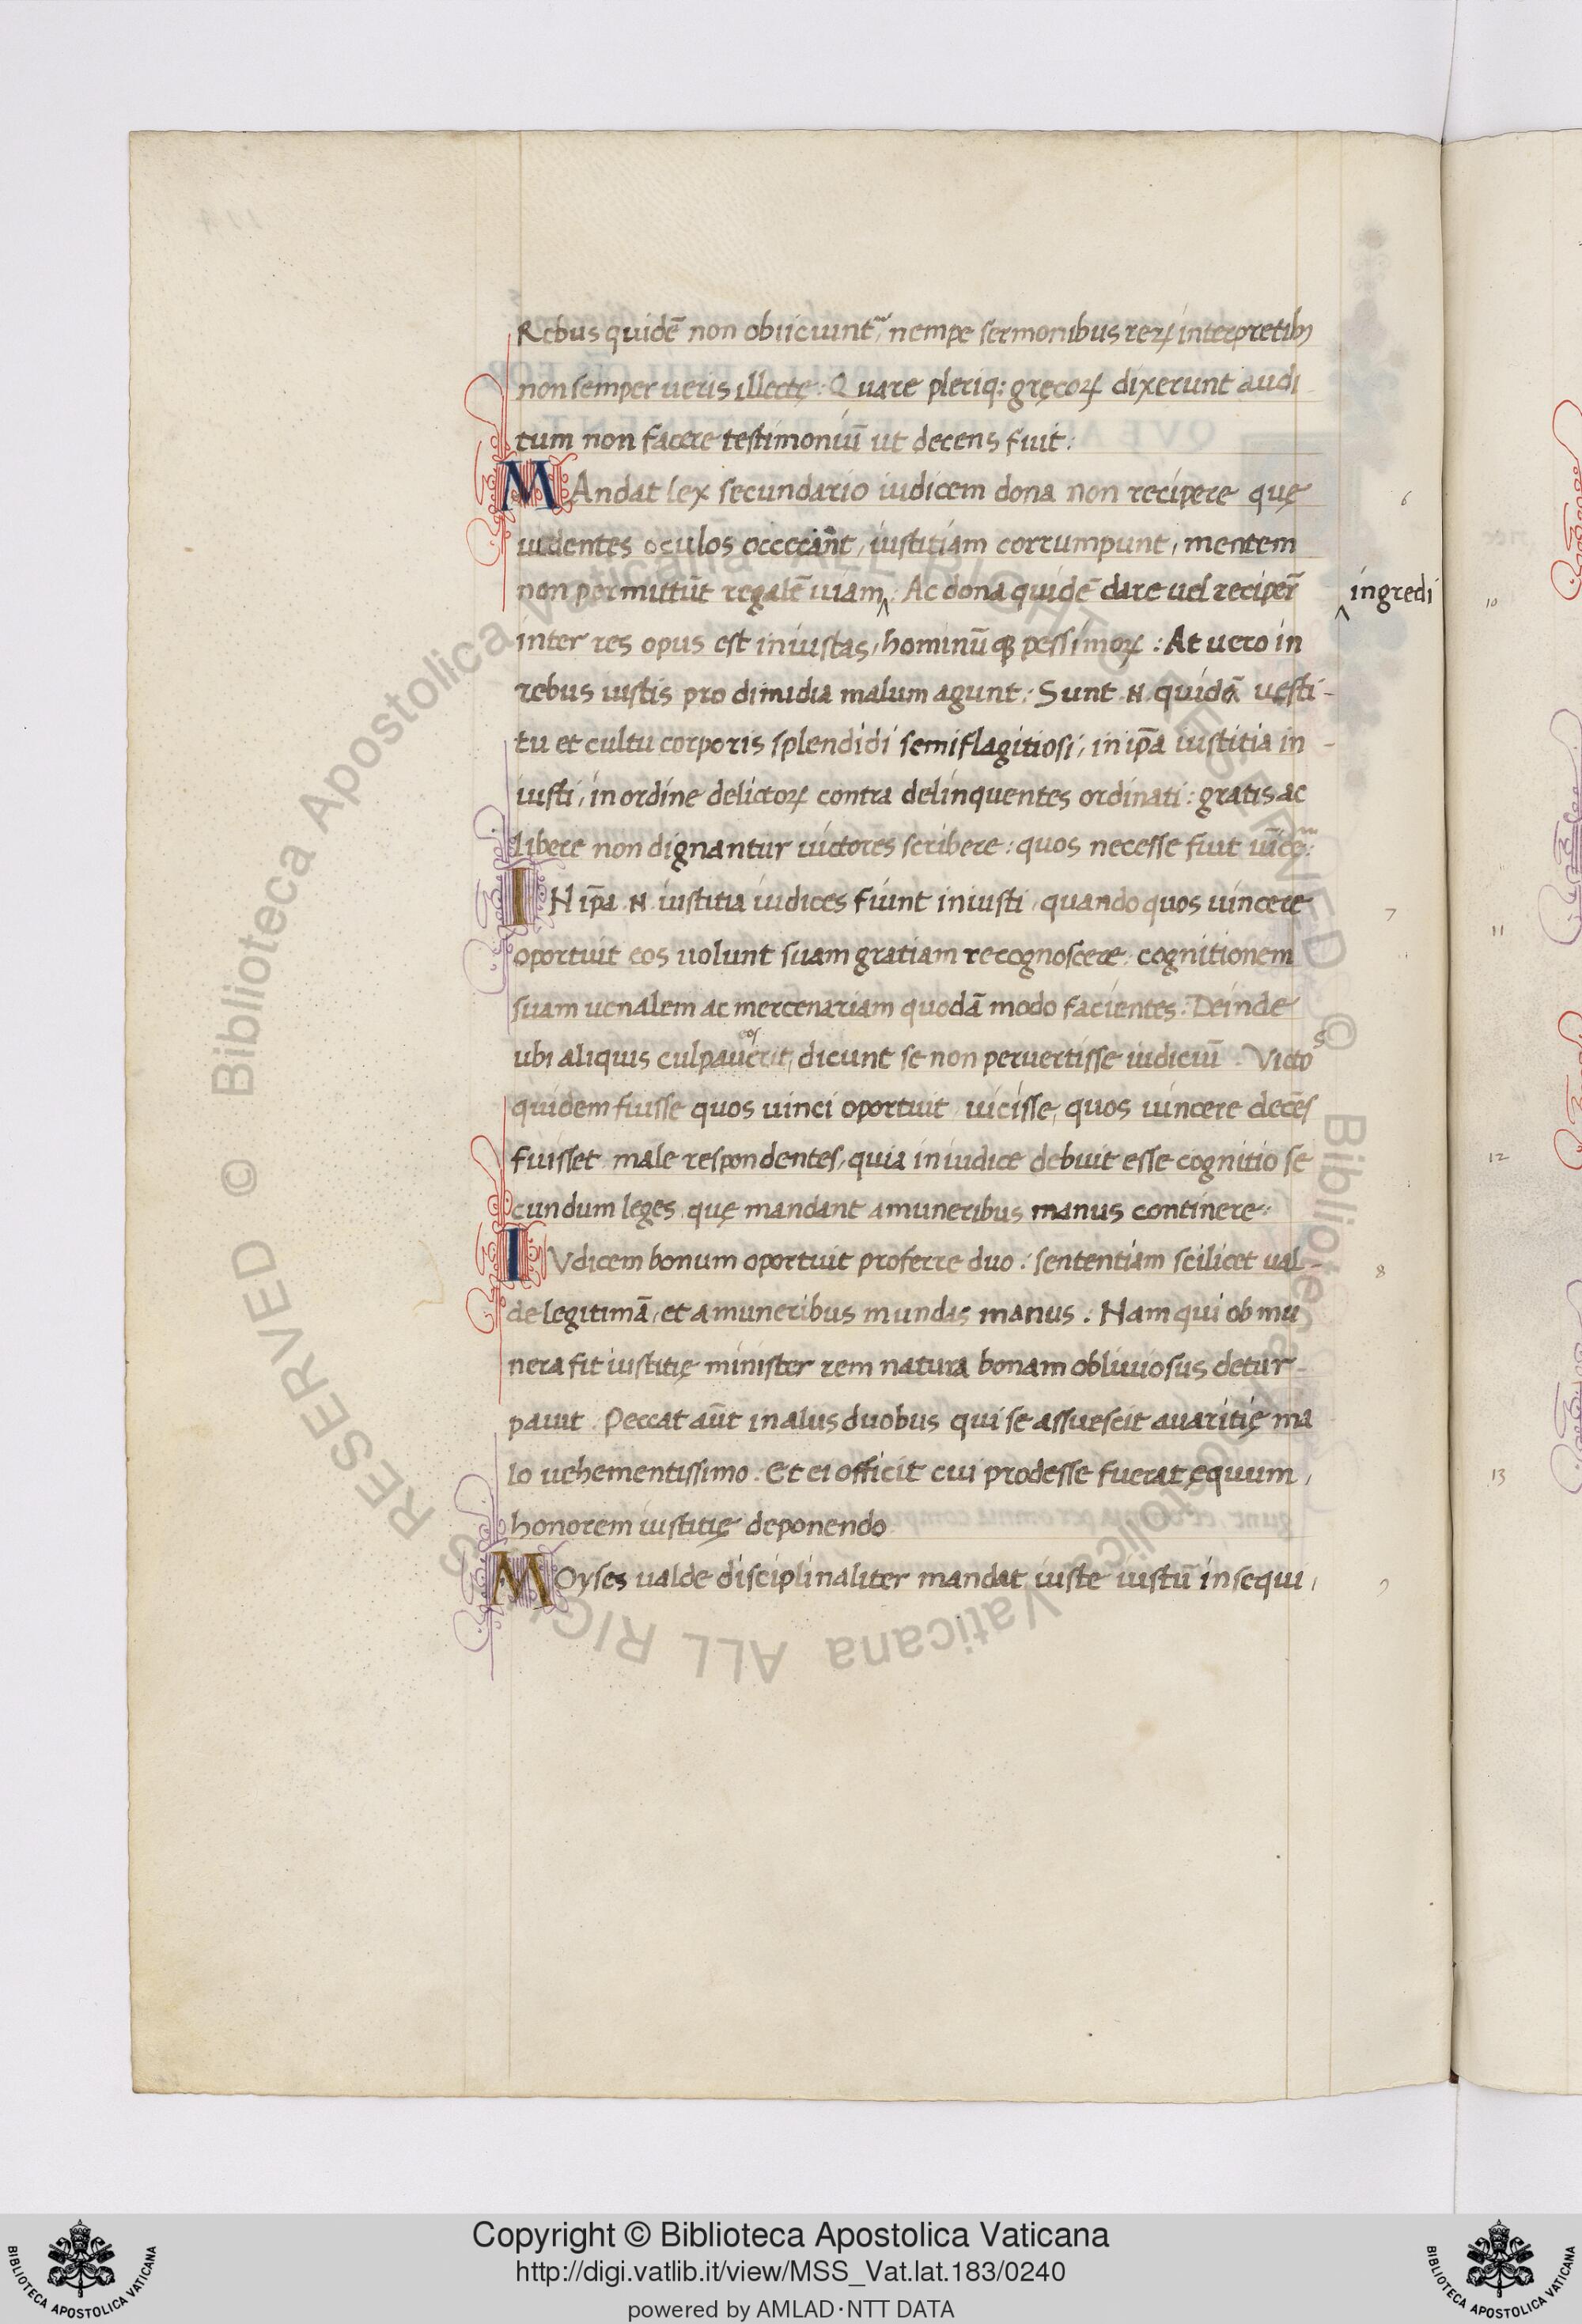 Rebus quidē non obiiciunt᷑, nempe sermonibus reꝝ interpretibꝫ
non semper ueris illectę: Quare pleriq: gręcoꝝ dixerunt audi
tum non facere testimoniū ut decens fuit:
MAndat lex secundario iudicem dona non recipere quę 6
uidentes oculos occecant, iustitiam corrumpunt, mentem
non permittūt regalē uiam‸: Ac dona quidē dare uel recipeř ‸ingredi
inter res opus est iniustas, hominū qꝫ pessimoꝝ: At uero in
rebus iustis pro dimidia malum agunt: Sunt .N. quidā uesti-
tu et cultu corporis splendidi semiflagitiosi, in ip̄a iustitia in-
iusti, in ordine delictoꝝ contra delinquentes ordinati: gratis ac
libere non dignantur uictores scribere: quos necesse fuit
IN ip̄a .N. iustitia iudices fiunt iniusti, quando quos uincere 7
oportuit eos uolunt suam gratiam recognoscere: cognitionem
suam uenalem ac mercenariam quodā modo facientes: Deinde
ubi aliquis culpauerit eos, dicunt se non peruertisse iudiciū: Victos
quidem fuisse quos uinci oportuit uicisse, quos uincere decēs
fuisset male respondentes, quia in iudice debuit esse cognitio se
cundum leges quę mandant a muneribus manus continere:
IVdicem bonum oportuit proferre duo: sententiam scilicet ual- 8
de legitimā, et a muneribus mundas manus: Nam qui ob mu
nera fit iustitię minister rem natura bonam obliuiosus detur-
pauit. Peccat aūt in aliis duobus qui se assuescit auaritię ma
lo uehementissimo: Et ei officit cui prodesse fuerat ęquum,
honorem iustitię deponendo
MOyses ualde disciplinaliter mandat iuste iustū insequi, 9
10
11
12
13
Copyright © Biblioteca Apostolica Vaticana
http://digi.vatlib.it/view/MSS_Vat.lat.183/0240
powered by AMLAD·NTT DATA
BIBLIOTECA APOSTOLICA VATICANA
BIBLIOTECA APOSTOLICA VATICANA
© Biblioteca Apostolica Vaticana ALL RIGHTS RESERVED
© Biblioteca Apostolica Vaticana ALL RIGHTS RESERVED